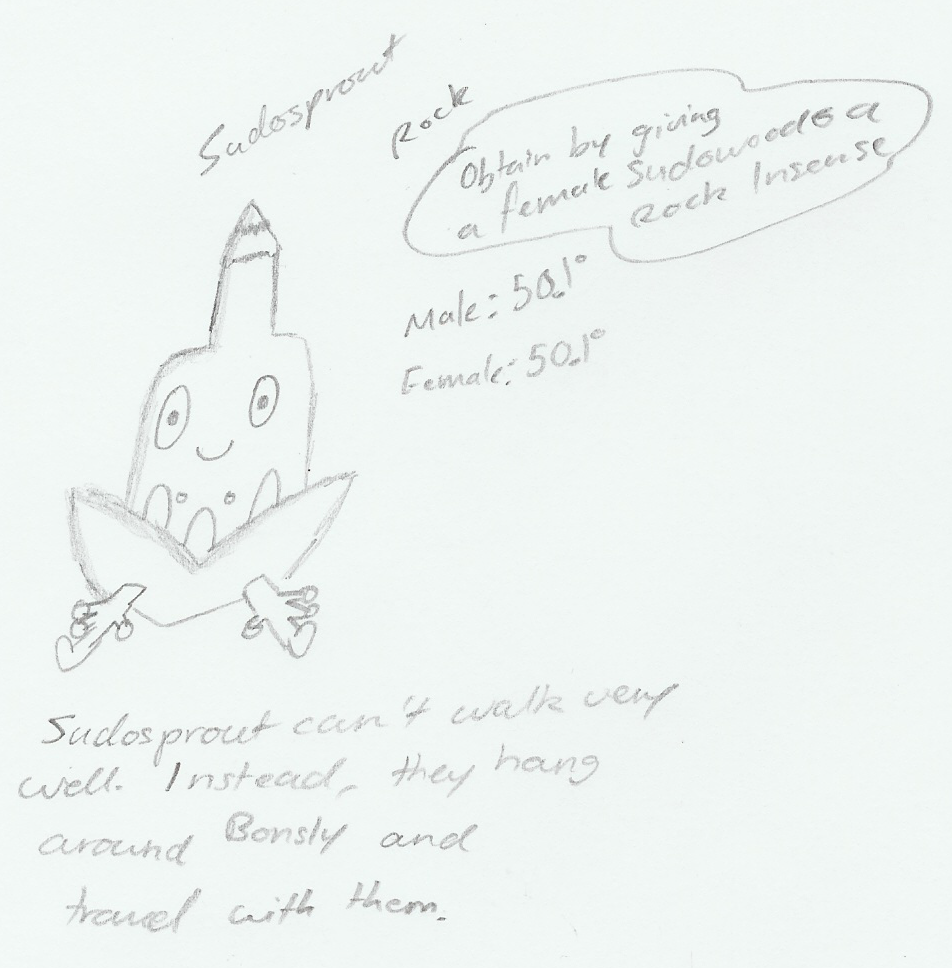 Sudosprout
Rock
Obtain by giving
a female Sudowoodo a
Rock Insense
Male: 50.1°
Female: 50.1°
Sudosprout can't walk very
well. Instead, they hang
around Bonsly and
travel with them.